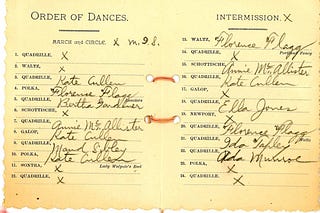 ORDER OF DANCES.
MARCH AND CIRCLE. X m. 28.
1. QUADRILLE, X
2. WALTZ, X
3. QUADRILLE, Kate Cullen
4. POLKA, Florence Flagg
5. QUADRILLE, Bertha Gardiner
6. SCHOTTISCHE, X
7. QUADRILLE, Annie McAllister
8. GALOP, Kate Cullen
9. QUADRILLE, Maud Sibley
10. POLKA, Kate Cullen
11. CONTRA, X Lady Walpole's Reel
12. QUADRILLE, X
INTERMISSION. X
13. WALTZ, Florence Flagg
14. QUADRILLE, X Portland Fancy
15. SCHOTTISCHE, Annie McAllister
16. QUADRILLE, Kate Cullen
17. GALOP, X
18. QUADRILLE, Ella Jones
19. NEWPORT, X
20. QUADRILLE, Florence Flagg
21. QUADRILLE, Ida Tapley
22. QUADRILLE, Ada Munroe
23. POLKA, X
24. QUADRILLE, X